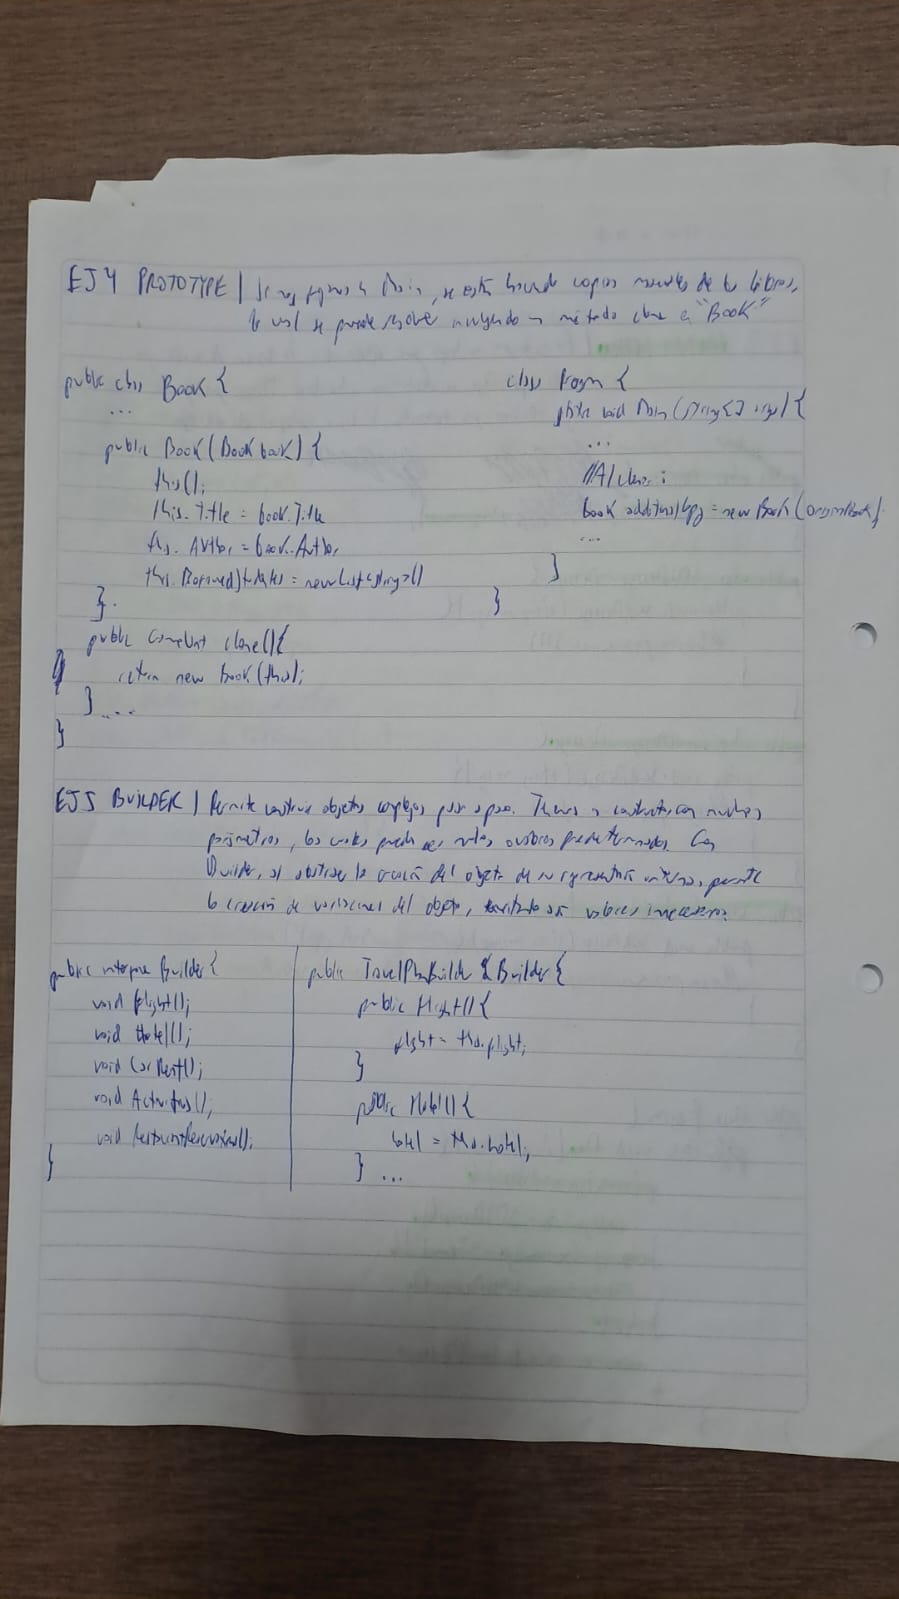 EJ4 PROTOTYPE | Si nos fijamos en Main, se está haciendo copias manuales de los libros,
lo cual se puede resolver incluyendo un método clone a "Book"
public class Book {
...
public Book(Book book) {
this();
this.Title = book.Title
this.Author = book.Author
this. = new List<string>()
}
public clone(){
return new Book(this);
} ...
}
class Program {
static void Main(string[] args){
...
//Al clonar:
book additionalCopy = new Book(originalBook);
...
}
}
EJ5 BUILDER | Permite construir objetos complejos paso a paso. Tenemos un constructor con muchos
parámetros, los cuales pueden ser nulos o valores predeterminados. Con
Builder, al abstraer la creación del objeto de su representación interna, permite
la creación de variaciones del objeto, evitando así valores innecesarios.
public interface Builder{
void flight();
void Hotel();
void CarRent();
void Activities();
void RestaurantReservations();
}
public TravelPlanBuilder : Builder{
public Flight(){
flight = this.flight;
}
public Hotel(){
hotel = this.hotel;
} ...